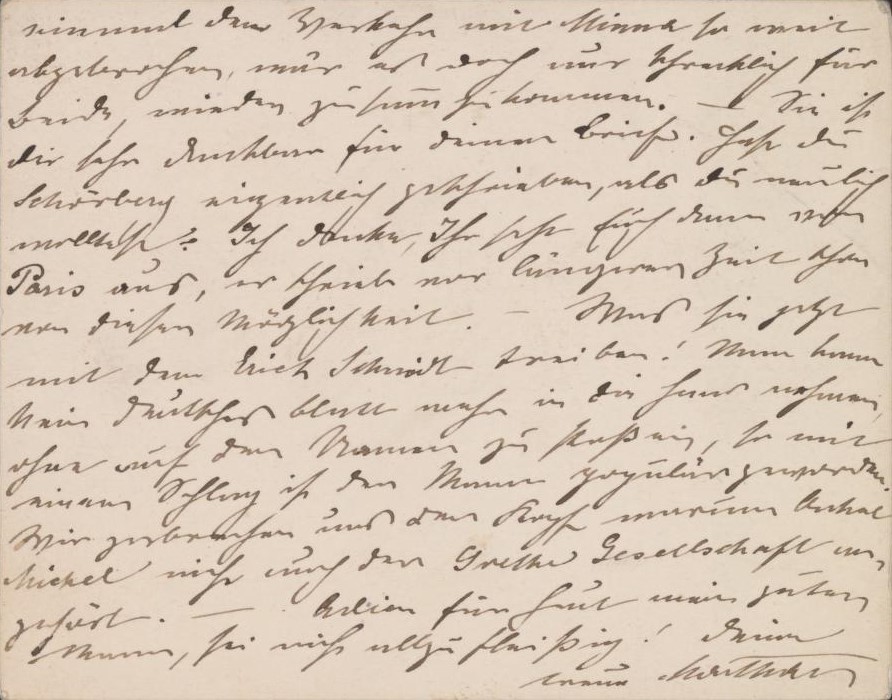 einmal den Verkehr mit Minna so weit
abgebrochen, wär es doch nur schrecklich für
beide, wieder zusammenzukommen. — Sie ist
dir sehr dankbar für deinen Brief. Hast du
Schönberg eigentlich geschrieben, als du neulich
wolltest? Ich denke, Ihr seht Euch dann von
Paris aus, er schrieb vor längerer Zeit schon
von diesen Möglichkeit. — Was sie jetzt
mit dem Erich Schmidt treiben! Man kann
kein deutsches Blatt mehr in die Hand nehmen,
ohne auf den Namen zu stoßen, so mit
einem Schlag ist der Mann populär geworden.
Wir zerbrechen uns den Kopf warum Onkel
Michel nicht auch der Goethe Gesellschaft an-
gehört. — Adieu für heut mein guter
Mann, sei nicht allzu fleißig! Deine
treue Martha